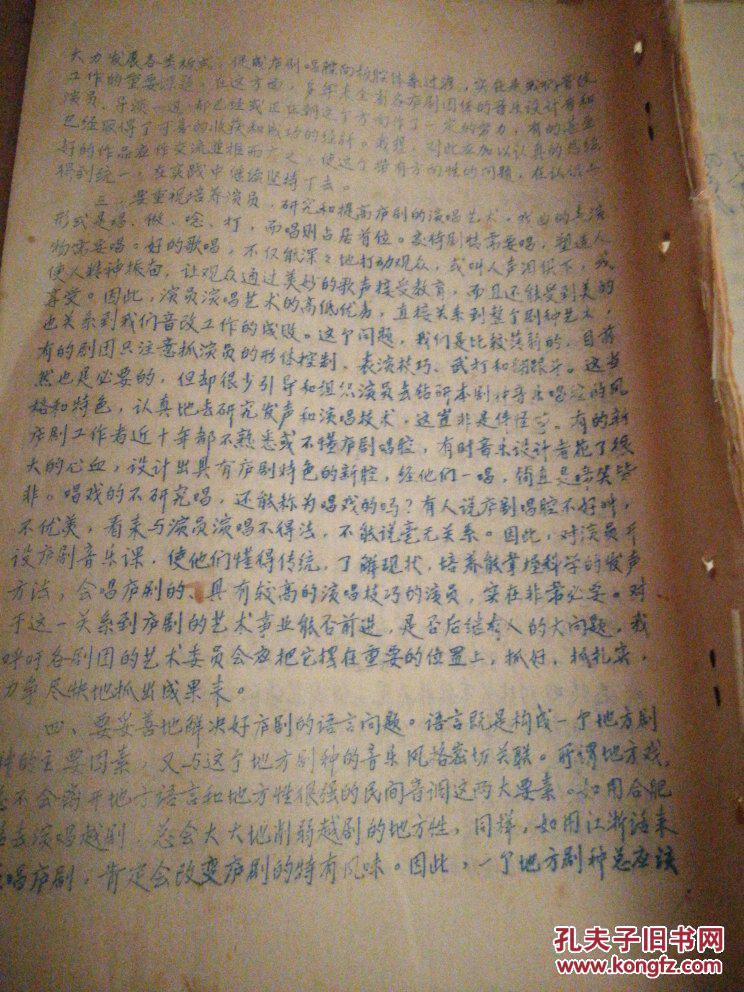 大力发展各类板式，促成庐剧唱腔向板腔体系过渡，实在是我们音改
工作的重要课题。在这方面，多年来全省各庐剧团体的音乐设计者和
演员、乐队一道，都已经或正在朝这个方面作了一定的努力，有的甚至
已经取得了可喜的收获和成功的经计。我想，对此应加以认真的总结
好的作品应作交流并推而广之，使这个带有方向性的问题，在认识上
得到统一，在实践中继续坚持下去。
三、要重视培养演员，研究和提高庐剧的演唱艺术。戏曲的表演
形式是唱、做、唸、打，而唱则占居首位。恋情剧情需要唱，塑造人
物需要唱。好的歌唱，不仅能深々地打动观众，或叫人声泪俱下，或
使人精神振奋，让观众通过美妙的歌声接受教育，而且还能受到美的
享受。因此，演员演唱艺术的高低优劣，直接关系到整个剧种艺术，
也关系到我们音改工作的成败。这个问题，我们是比较落新的。目前
有的剧团只注意抓演员的形体控制、表演技巧、武打和翻跟斗。这当
然也是必要的，但却很少引导和组织演员去钻研本剧种音乐唱腔的风
格和特色，认真地去研究发声和演唱技术，这岂非是件怪事。有的新
庐剧工作者近十年都不熟悉或不懂庐剧唱腔，有时音乐设计者花了很
大的心血，设计出具有庐剧特色的新腔，经他们一唱，简直是啼笑皆
非。唱戏的不研究唱，还能称为唱戏的吗？有人说庐剧唱腔不好听，
不优美，看来与演员演唱不得法，不能说毫无关系。因此，对演员开
设庐剧音乐课，使他们懂得传统，了解现状，培养能掌握科学的发声
方法，会唱庐剧的、具有较高的演唱技巧的演员，实在非常必要。对
于这一关系到庐剧的艺术事业能否前进，是否后继有人的大问题，我
呼吁各剧团的艺术委员会应把它摆在重要的位置上，抓好、抓扎实，
力争尽快地抓出成果来。
四、要妥善地解决好庐剧的语言问题。语言既是构成一个地方剧
种的主要因素，又与这个地方剧种的音乐风格密切关联。所谓地方戏，
总不会离开地方语言和地方性很强的民间音调这两大要素。如用合肥
话去演唱越剧，总会大大地削弱越剧的地方性，同样，如用江浙话来
演唱庐剧，肯定会改变庐剧的特有风味。因此，一个地方剧种总应该
孔夫子旧书网
www.kongfz.com